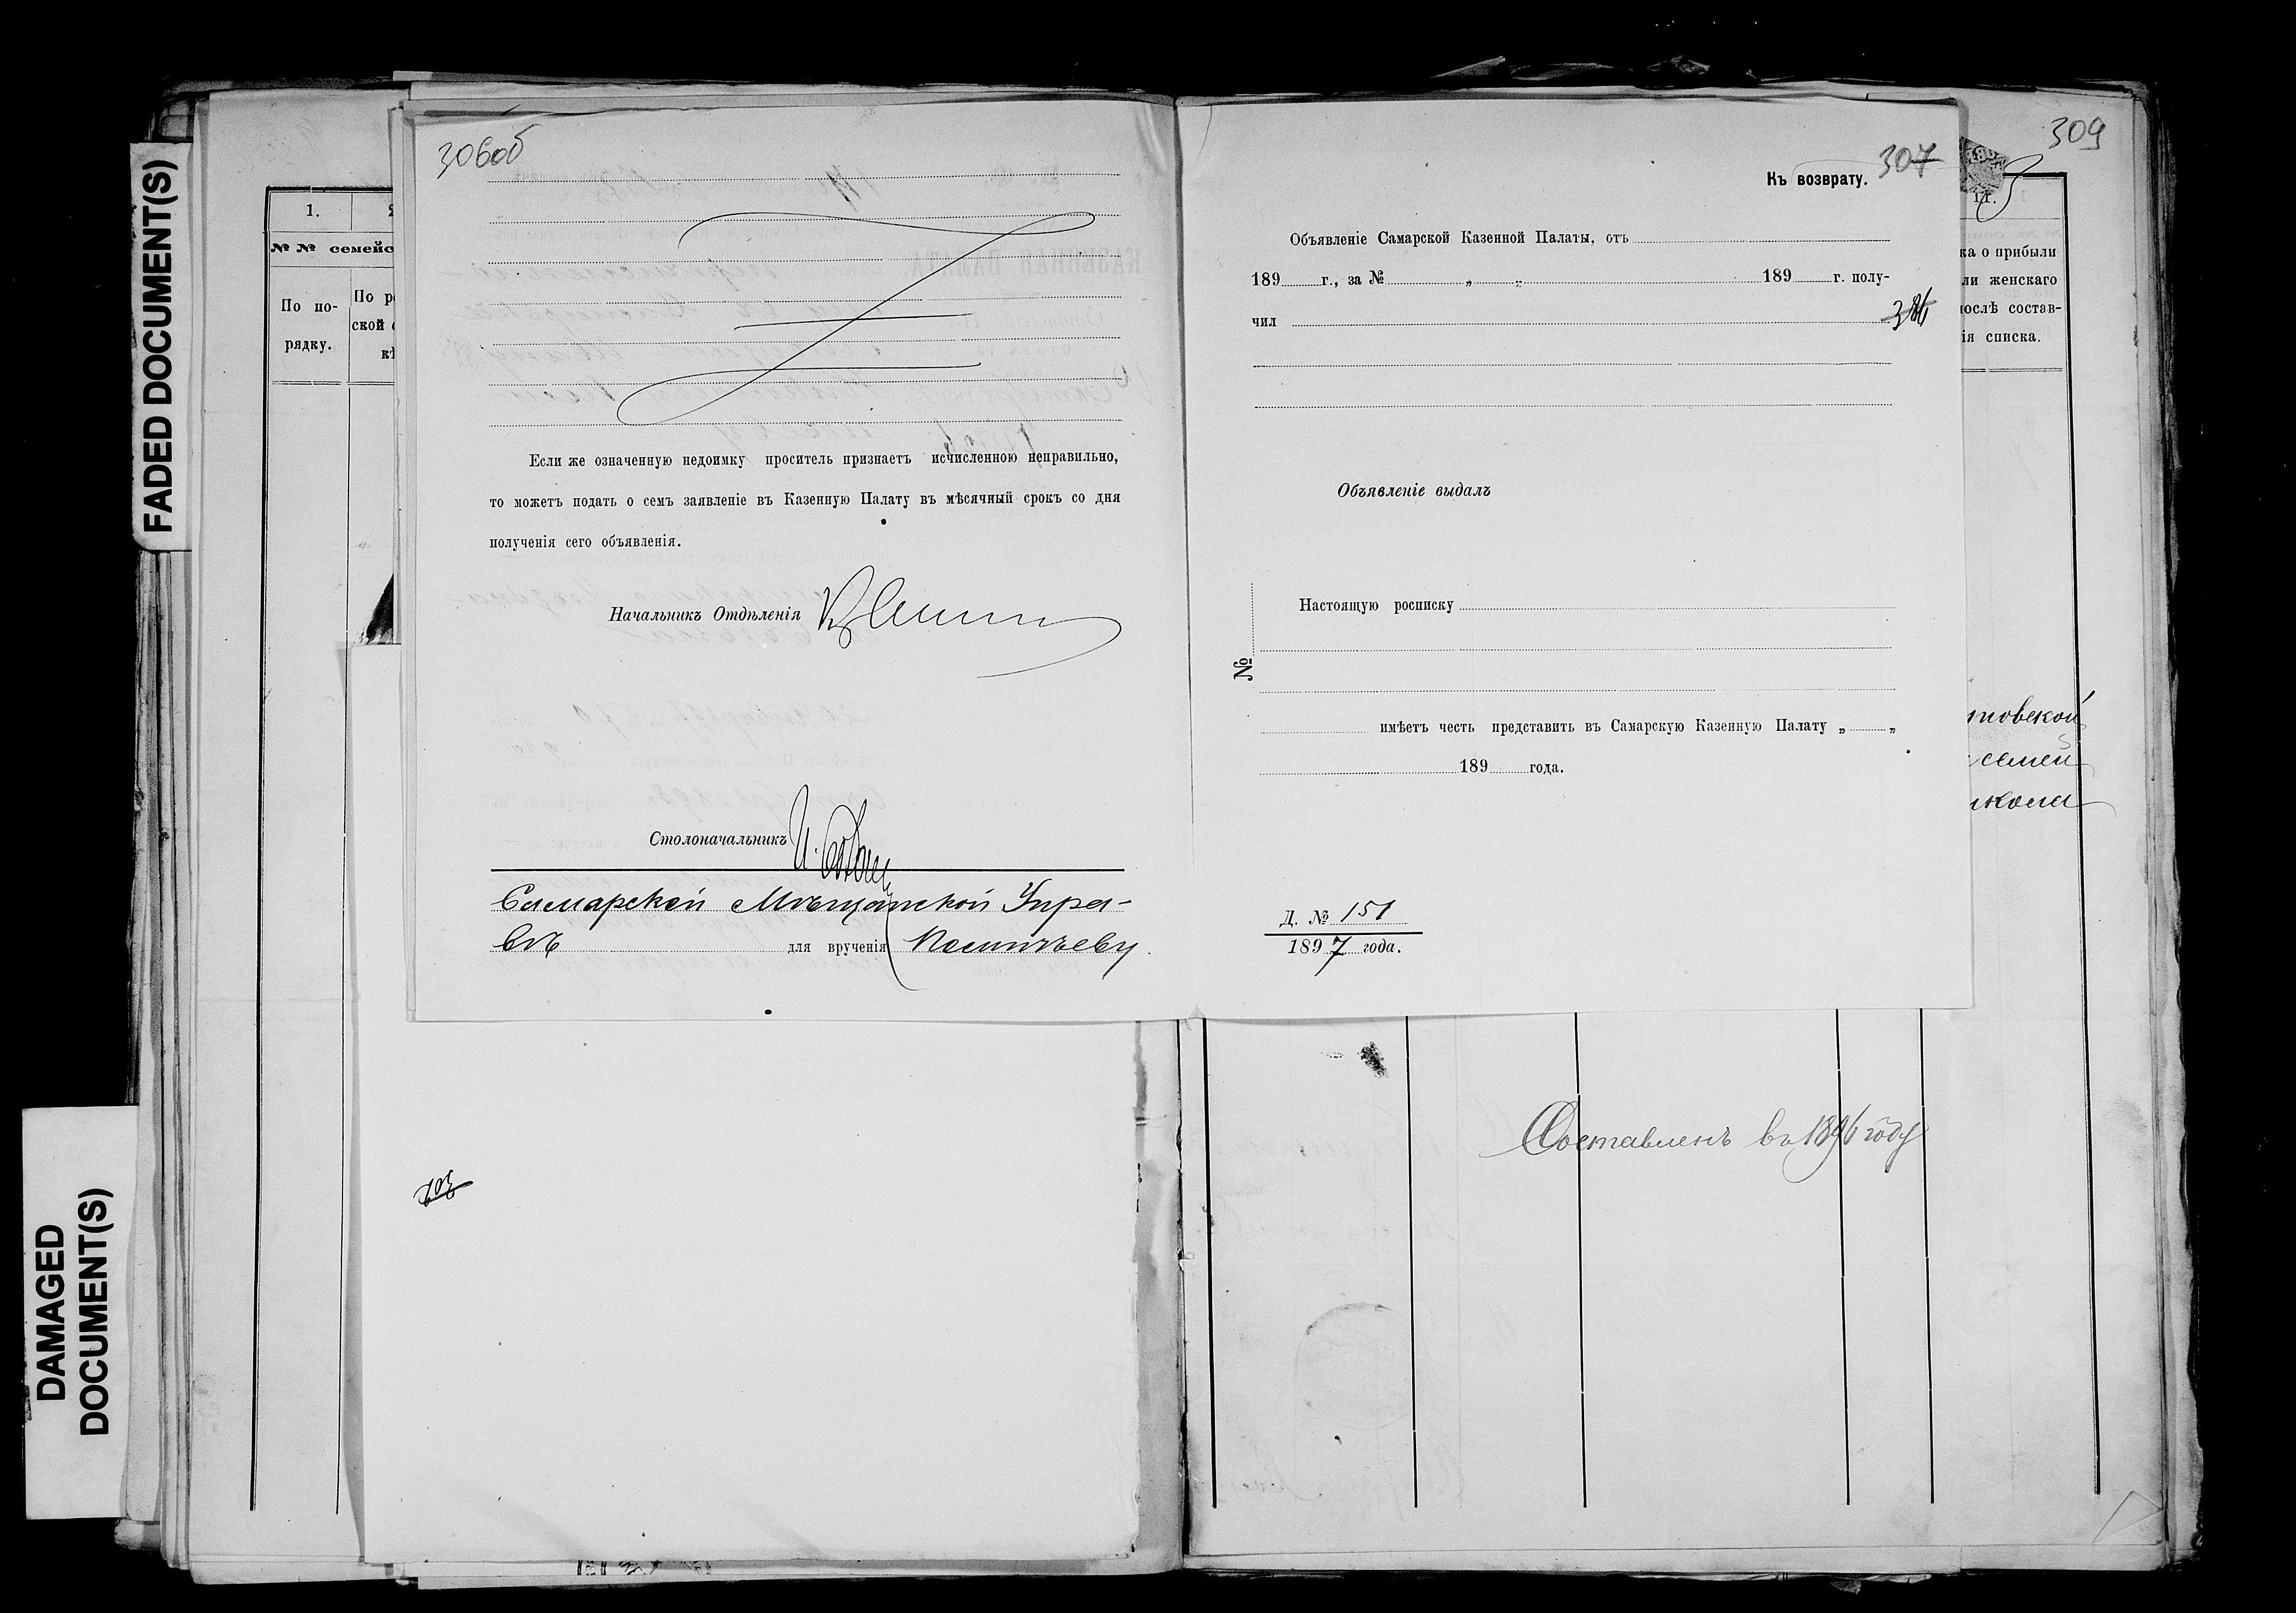 FADED DOCUMENT(S)
DAMAGED
DOCUMENT(S)
1.
№ № семейс
По по-
рядку.
ской
306об
Если же означенную недоимку проситель признаетъ исчисленною неправильно,
то можетъ подать о семъ заявленіе въ Казенную Палату въ мѣсячный срокъ со дня
полученія сего объявленія.
Начальникъ Отдѣленія
Столоначальникъ
Самарской Мѣщанской Упра-
вѣ для врученія
307
Къ возврату.
Объявленіе Самарской Казенной Палаты, отъ
189 г., за № „ „ 189 г. полу-
чил
Объявленіе выдалъ
Настоящую росписку
№
имѣетъ честь представить въ Самарскую Казенную Палату „ „
189 года.
Д. № 151
1897 года.
309
11.
ка о прибыли
ли женскаго
послѣ состав-
ія списка.
товской
семей
Составленъ въ 1896 году